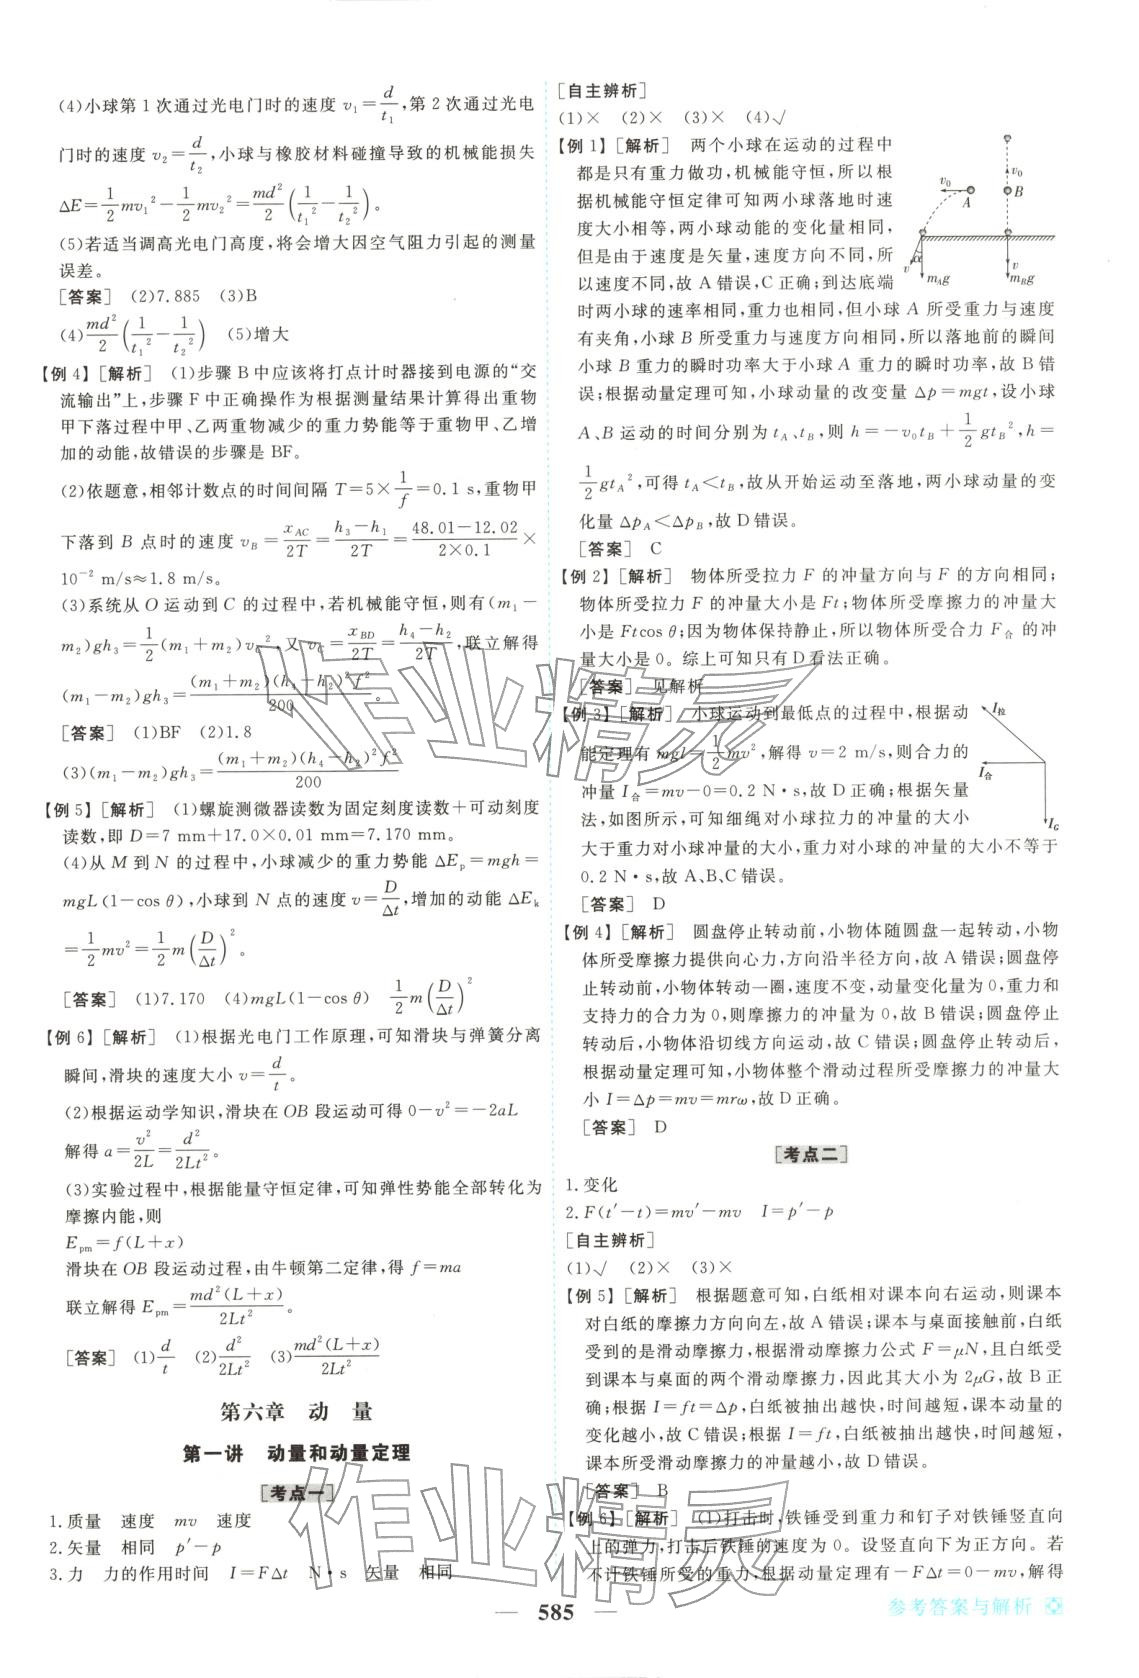 (4)小球第1次通过光电门时的速度 v₁=d/t₁,第2次通过光电
门时的速度 v₂=d/t₂,小球与橡胶材料碰撞导致的机械能损失
ΔE=1/2 mv₁²-1/2 mv₂²=md²/2(1/t₁²-1/t₂²)。
(5)若适当调高光电门高度,将会增大因空气阻力引起的测量
误差。
[答案] (2)7.885 (3)B
(4)md²/2(1/t₁²-1/t₂²) (5)增大
【例4】[解析] (1)步骤B中应该将打点计时器接到电源的“交
流输出”上,步骤F中正确操作为根据测量结果计算得出重物
甲下落过程中甲、乙两重物减少的重力势能等于重物甲、乙增
加的动能,故错误的步骤是BF。
(2)依题意,相邻计数点的时间间隔 T=5×1/f=0.1 s,重物甲
下落到B点时的速度 v_B=x_AC/2T=(h₃-h₁)/2T=(48.01-12.02)/(2×0.1)×
10⁻² m/s≈1.8 m/s。
(3)系统从O运动到C的过程中,若机械能守恒,则有(m₁-
m₂)gh₃=1/2(m₁+m₂)v_C²,又v_C=x_BD/2T=(h₄-h₂)/2T,联立解得
(m₁-m₂)gh₃=(m₁+m₂)(h₄-h₂)²f²/200。
[答案] (1)BF (2)1.8
(3)(m₁-m₂)gh₃=(m₁+m₂)(h₄-h₂)²f²/200
【例5】[解析] (1)螺旋测微器读数为固定刻度读数+可动刻度
读数,即D=7 mm+17.0×0.01 mm=7.170 mm。
(4)从M到N的过程中,小球减少的重力势能 ΔE_p=mgh=
mgL(1-cos θ),小球到N点的速度 v=D/Δt,增加的动能 ΔE_k
=1/2 mv²=1/2 m(D/Δt)²。
[答案] (1)7.170 (4)mgL(1-cos θ) 1/2 m(D/Δt)²
【例6】[解析] (1)根据光电门工作原理,可知滑块与弹簧分离
瞬间,滑块的速度大小 v=d/t。
(2)根据运动学知识,滑块在OB段运动可得 0-v²=-2aL
解得 a=v²/2L=d²/2Lt²。
(3)实验过程中,根据能量守恒定律,可知弹性势能全部转化为
摩擦内能,则
E_pm=f(L+x)
滑块在OB段运动过程,由牛顿第二定律,得 f=ma
联立解得 E_pm=md²(L+x)/2Lt²。
[答案] (1)d/t (2)d²/2Lt² (3)md²(L+x)/2Lt²
第六章 动 量
第一讲 动量和动量定理
[考点一]
1.质量 速度 mv 速度
2.矢量 相同 p′-p
3.力 力的作用时间 I=FΔt N·s 矢量 相同
[自主辨析]
(1)× (2)× (3)× (4)√
【例1】[解析] 两个小球在运动的过程中
都是只有重力做功,机械能守恒,所以根
据机械能守恒定律可知两小球落地时速
度大小相等,两小球动能的变化量相同,
但是由于速度是矢量,速度方向不同,所
以速度不同,故A错误,C正确;到达底端
时两小球的速率相同,重力也相同,但小球A所受重力与速度
有夹角,小球B所受重力与速度方向相同,所以落地前的瞬间
小球B重力的瞬时功率大于小球A重力的瞬时功率,故B错
误;根据动量定理可知,小球动量的改变量 Δp=mgt,设小球
A、B运动的时间分别为 t_A、t_B,则 h=-v₀t_B+1/2 gt_B²,h=
1/2 gt_A²,可得 t_A<t_B,故从开始运动至落地,两小球动量的变
化量 Δp_A<Δp_B,故D错误。
[答案] C
v₀ A v₀ B
v α m_Ag v m_Bg
【例2】[解析] 物体所受拉力F的冲量方向与F的方向相同;
物体所受拉力F的冲量大小是Ft;物体所受摩擦力的冲量大
小是Ftcos θ;因为物体保持静止,所以物体所受合力F合的冲
量大小是0。综上可知只有D看法正确。
[答案] 见解析
【例3】[解析] 小球运动到最低点的过程中,根据动
能定理有 mgl=1/2 mv²,解得 v=2 m/s,则合力的
冲量 I合=mv-0=0.2 N·s,故D正确;根据矢量
法,如图所示,可知细绳对小球拉力的冲量的大小
大于重力对小球冲量的大小,重力对小球的冲量的大小不等于
0.2 N·s,故A、B、C错误。
[答案] D
I拉
I合
I_G
【例4】[解析] 圆盘停止转动前,小物体随圆盘一起转动,小物
体所受摩擦力提供向心力,方向沿半径方向,故A错误;圆盘停
止转动前,小物体转动一圈,速度不变,动量变化量为0,重力和
支持力的合力为0,则摩擦力的冲量为0,故B错误;圆盘停止
转动后,小物体沿切线方向运动,故C错误;圆盘停止转动后,
根据动量定理可知,小物体整个滑动过程所受摩擦力的冲量大
小 I=Δp=mv=mrω,故D正确。
[答案] D
[考点二]
1.变化
2.F(t′-t)=mv′-mv I=p′-p
[自主辨析]
(1)√ (2)× (3)×
【例5】[解析] 根据题意可知,白纸相对课本向右运动,则课本
对白纸的摩擦力方向向左,故A错误;课本与桌面接触前,白纸
受到的是滑动摩擦力,根据滑动摩擦力公式 F=μN,且白纸受
到课本与桌面的两个滑动摩擦力,因此其大小为2μG,故B正
确;根据 I=ft=Δp,白纸被抽出越快,时间越短,课本动量的
变化越小,故C错误;根据 I=ft,白纸被抽出越快,时间越短,
课本所受滑动摩擦力的冲量越小,故D错误。
[答案] B
【例6】[解析] (1)打击时,铁锤受到重力和钉子对铁锤竖直向
上的弹力,打击后铁锤的速度为0。设竖直向下为正方向。若
不计铁锤所受的重力,根据动量定理有-FΔt=0-mv,解得
585
参考答案与解析
作业精灵
作业精灵